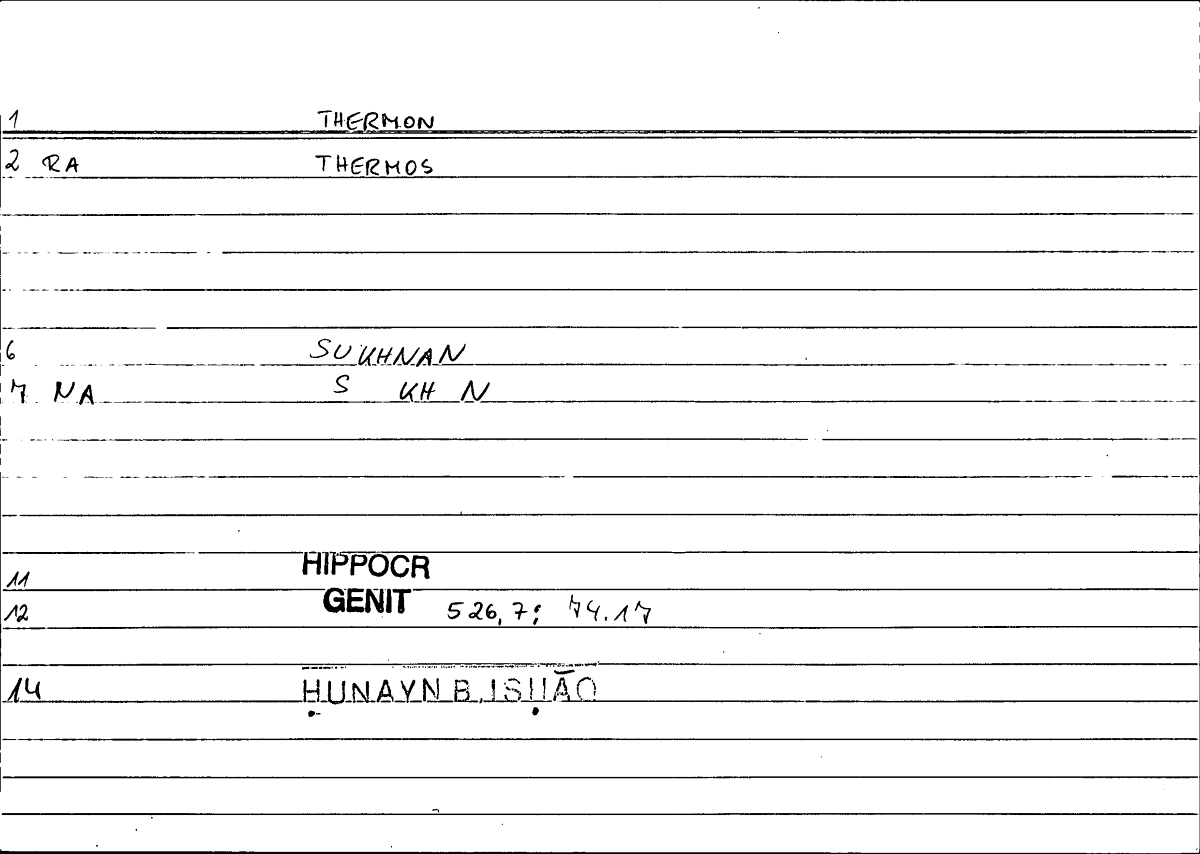 1 THERMON
2 RA THERMOS
6 SUKHNAN
7 NA S KH N
11 HIPPOCR
12 GENIT 526,7; 74.17
14 ḤUNAYN B. ISḤĀQ